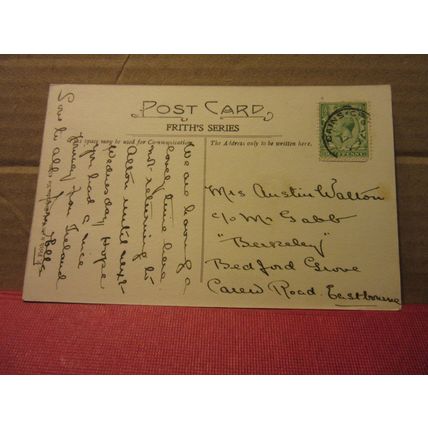 POST CARD
FRITH'S SERIES
This space may be used for Communication
The Address only to be written here.
We are having a
lovely time here
not returning to
Alton until next
Wednesday. Hope
you had a nice
journey from Ireland
Love to all from
Mrs Austin Walton
c/o Mr Gabb
"Berkeley"
Bedford Grove
Carew Road. Eastbourne